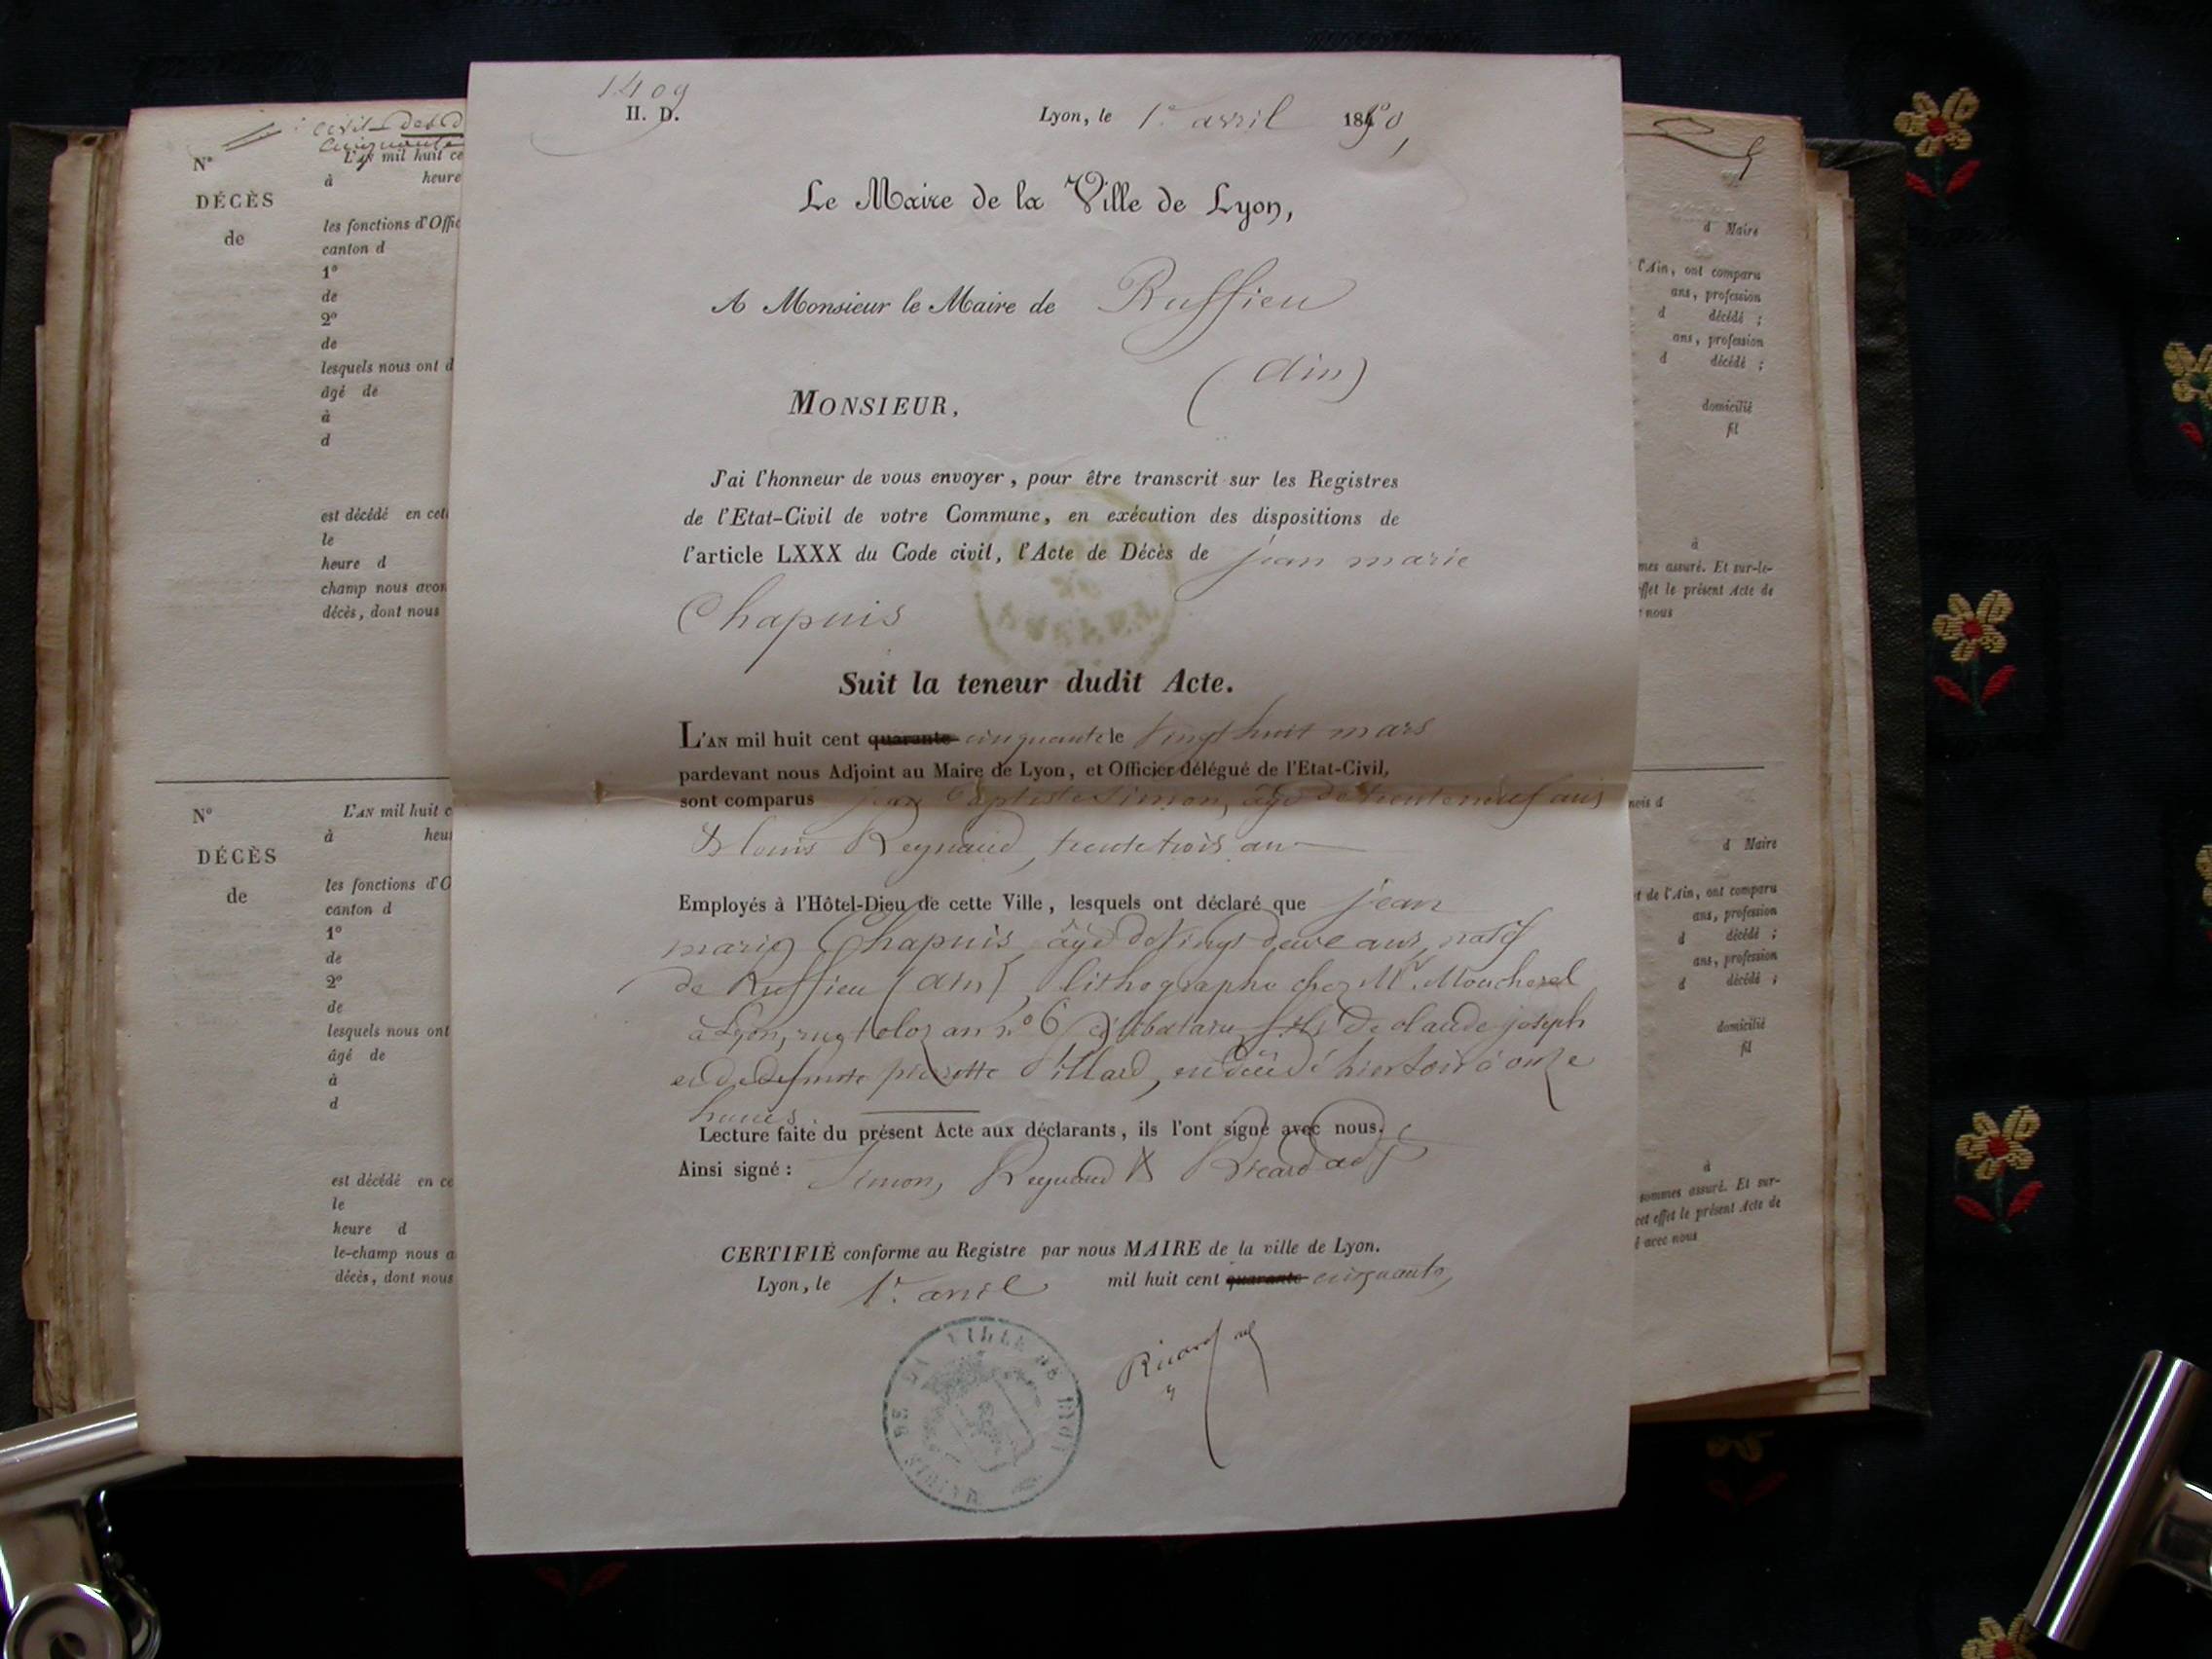 1409
H. D.
Lyon, le 1er avril 1850,
Le Maire de la Ville de Lyon,
A Monsieur le Maire de Ruffieu
(Ain)
MONSIEUR,
J'ai l'honneur de vous envoyer, pour être transcrit sur les Registres
de l'Etat-Civil de votre Commune, en exécution des dispositions de
l'article LXXX du Code civil, l'Acte de Décès de jean marie
Chapuis
Suit la teneur dudit Acte.
L'AN mil huit cent quarante cinquante le vingt huit mars
pardevant nous Adjoint au Maire de Lyon, et Officier délégué de l'Etat-Civil,
sont comparus jean Baptiste Simon, âgé de trente neuf ans
& louis Reynaud, trente trois ans
Employés à l'Hôtel-Dieu de cette Ville, lesquels ont déclaré que jean
marie Chapuis, âgé de vingt deux ans, natif
de Ruffieu (ain), lithographe chez Mr. Moucherel
à Lyon, rue n.º 6, célibataire, fils de claude joseph
et de defunte pierrette Villard, est décédé hier soir à onze
heures.
Lecture faite du présent Acte aux déclarants, ils l'ont signé avec nous.
Ainsi signé : Simon, Reynaud & Ricard adj
CERTIFIÉ conforme au Registre par nous MAIRE de la ville de Lyon.
Lyon, le 1er avril mil huit cent quarante cinquante,
Ricard adj
MAIRIE DE LA VILLE DE LYON
civil des d
cinquante
N°
L'AN mil huit ce
à heure
DÉCÈS
de
les fonctions d'Offic
canton d
1°
de
2°
de
lesquels nous ont d
âgé de
à
d
est décédé en cet
le
heure d
champ nous avon
décès, dont nous
N°
L'AN mil huit c
à heu
DÉCÈS
de
les fonctions d'O
canton d
1°
de
2°
de
lesquels nous ont
âgé de
à
d
est décédé en ce
le
heure d
le-champ nous a
décès, dont nous
d Maire
l'Ain, ont comparu
ans, profession
d décédé ;
ans, profession
d décédé ;
domicilié
fil
à
mes assuré. Et sur-le-
effet le présent Acte de
nous
mois d
d Maire
t de l'Ain, ont comparu
ans, profession
d décédé ;
ans, profession
d décédé ;
domicilié
fil
à
sommes assuré. Et sur-
cet effet le présent Acte de
é avec nous